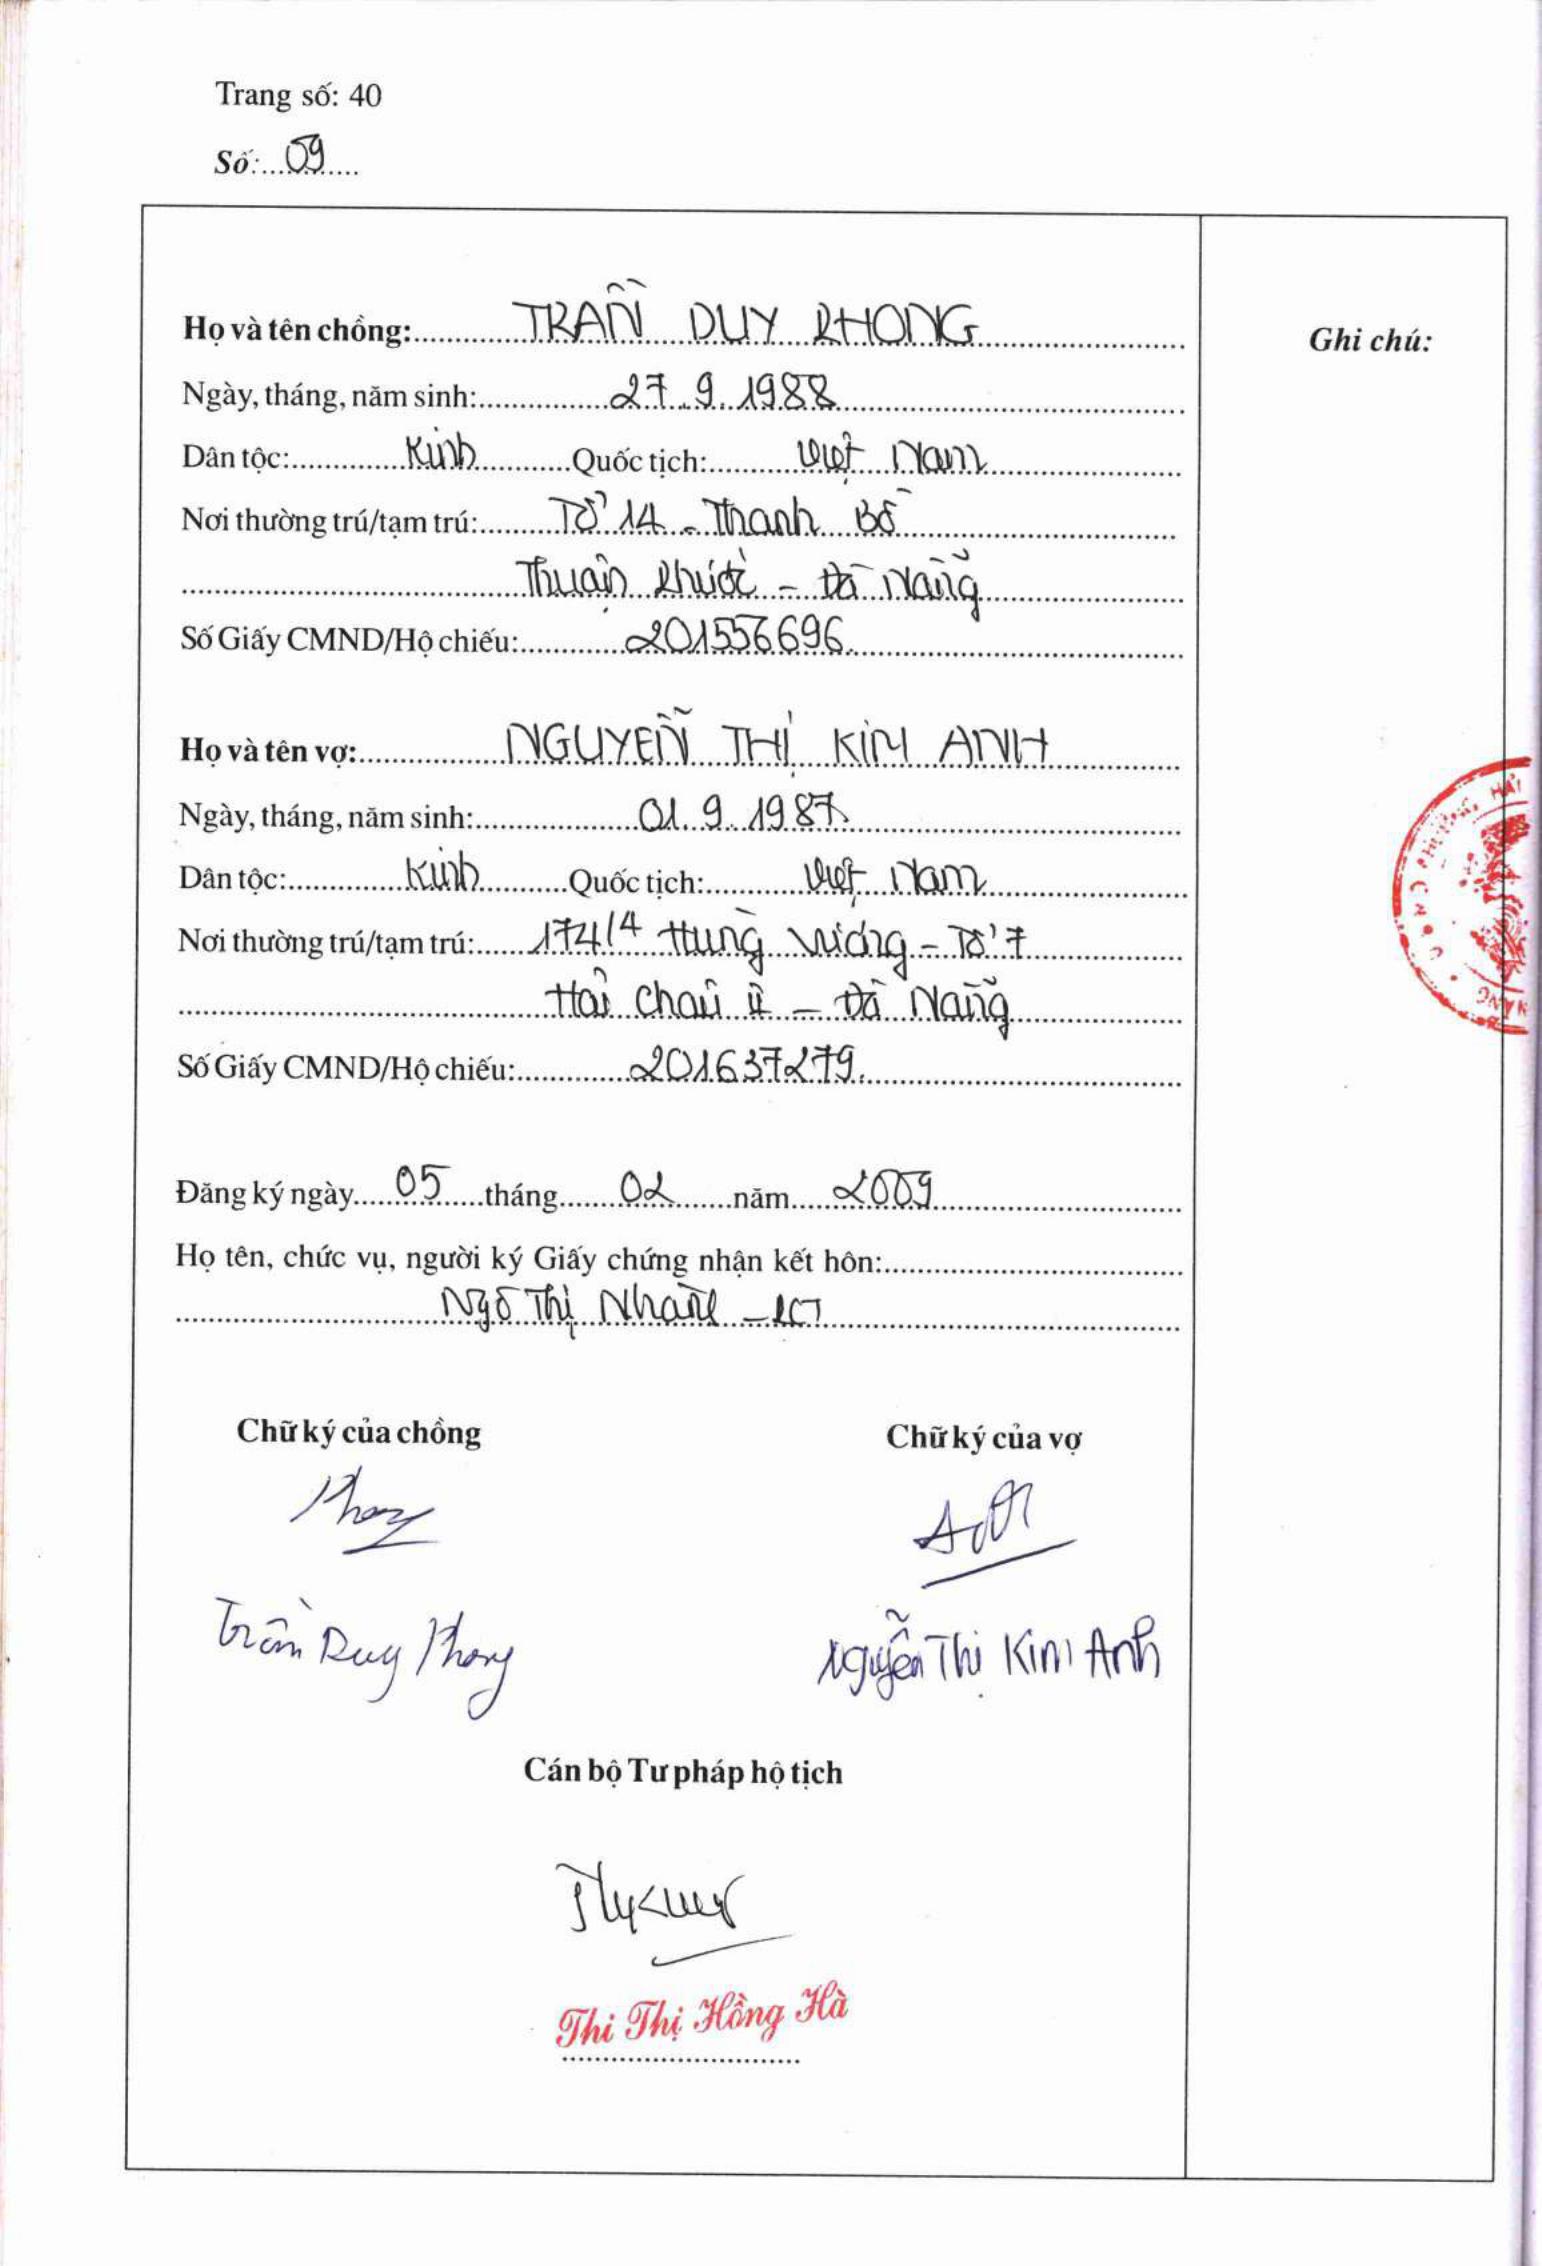 Trang số: 40
Số: 09
Họ và tên chồng: TRẦN DUY PHONG
Ghi chú:
Ngày, tháng, năm sinh: 27.9.1988
Dân tộc: Kinh Quốc tịch: Việt Nam
Nơi thường trú/tạm trú: Tổ 14 - Thanh Bồ
Thuận Phước - Đà Nẵng
Số Giấy CMND/Hộ chiếu: 201556696
Họ và tên vợ: NGUYỄN THỊ KIM ANH
Ngày, tháng, năm sinh: 01.9.1987
Dân tộc: Kinh Quốc tịch: Việt Nam
Nơi thường trú/tạm trú: 174/4 Hùng Vương - Tổ 7
Hải Châu II - Đà Nẵng
Số Giấy CMND/Hộ chiếu: 201637279
Đăng ký ngày 05 tháng 02 năm 2009
Họ tên, chức vụ, người ký Giấy chứng nhận kết hôn:
Ngô Thị Nhàn - PCT
Chữ ký của chồng
Chữ ký của vợ
Phong
Trần Duy Phong
Nguyễn Thị Kim Anh
Cán bộ Tư pháp hộ tịch
Thi Thị Hồng Hà